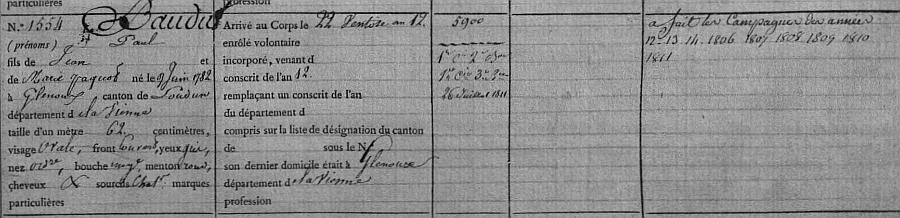 particulières
profession
particulières
N.° 1554
Baudu
(prénoms) Paul
fils de Jean et
de Marie Jaques né le 9 Juin 1782
à Glenouze canton de Loudun
département d e la Vienne
taille d'un mètre 62 centimètres,
visage Ovale, front couvert, yeux gris,
nez ordre, bouche moye, menton rond,
cheveux & sourcils Chat. marques
particulières
Arrivé au Corps le 22 Ventose an 12.
enrôlé volontaire
incorporé, venant d
conscrit de l'an 12.
remplaçant un conscrit de l'an
du département d
compris sur la liste de désignation du canton
de sous le N.
son dernier domicile était à Glenouze
département d e la Vienne
profession
5900
1re Cie 2e Bon
1re Cie 3e Bon
26 Juillet 1811
a fait les Campagnes des années
12. 13. 14. 1806 1807 1808. 1809. 1810
1811